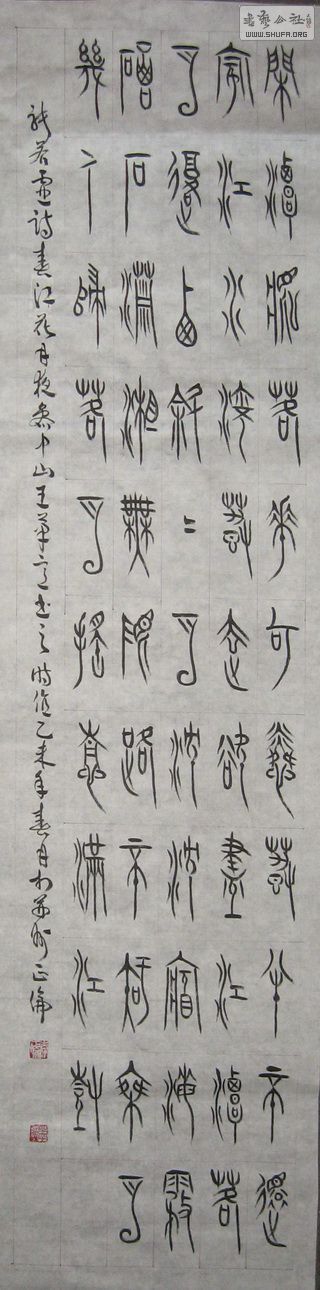 書藝公社
WWW.SHUFA.ORG
閑潭夢落花可憐春半不還
家江水流春去欲盡江潭落
月復西斜〻月沉沉藏海霧
碣石瀟湘無限路不知乘月
幾人歸落月搖情滿江樹
張若虛詩春江花月夜參中山王筆意書之時值乙未年春月於并州正倫